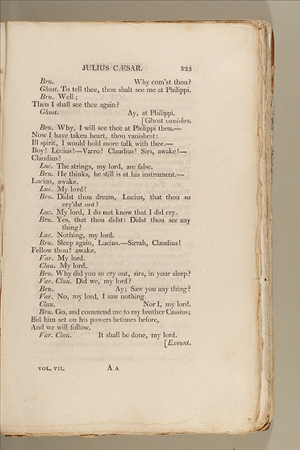 JULIUS CÆSAR. 323
Bru. Why com'st thou?
Ghost. To tell thee, thou shalt see me at Philippi.
Bru. Well;
Then I shall see thee again?
Ghost. Ay, at Philippi.
[Ghost vanishes.
Bru. Why, I will see thee at Philippi then.—
Now I have taken heart, thou vanishest:
Ill spirit, I would hold more talk with thee.—
Boy! Lucius!—Varro! Claudius! Sirs, awake!—
Claudius!
Luc. The strings, my lord, are false.
Bru. He thinks, he still is at his instrument.—
Lucius, awake.
Luc. My lord!
Bru. Didst thou dream, Lucius, that thou so
cry'dst out?
Luc. My lord, I do not know that I did cry.
Bru. Yes, that thou didst: Didst thou see any
thing?
Luc. Nothing, my lord.
Bru. Sleep again, Lucius.—Sirrah, Claudius!
Fellow thou! awake.
Var. My lord.
Clau. My lord.
Bru. Why did you so cry out, sirs, in your sleep?
Var. Clau. Did we, my lord?
Bru. Ay; Saw you any thing?
Var. No, my lord, I saw nothing.
Clau. Nor I, my lord.
Bru. Go, and commend me to my brother Cassius;
Bid him set on his powers betimes before,
And we will follow.
Var. Clau. It shall be done, my lord.
[Exeunt.
VOL. VII. A a